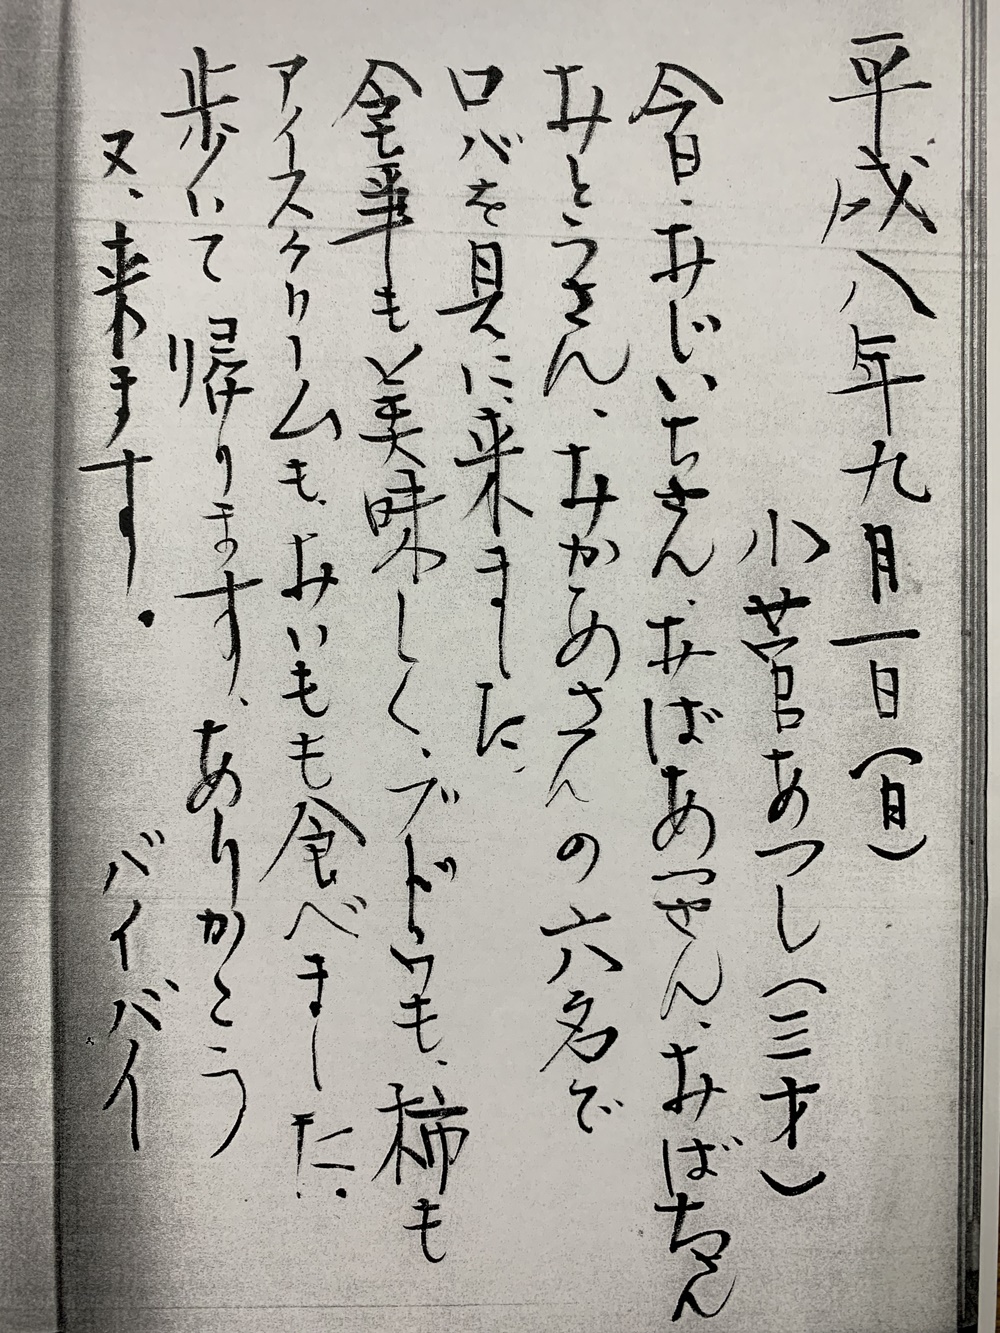 平成八年九月一日(日)
小菅あつし(三才)
今日、おじいちさん、おばあつやん、おばちゃん
おとうさん、おかあさんの六名で
ロバを見に来ました、
食事も美味しく、ブドウも、柿も
アイスクリームも、おいもも食べました.
歩いて帰ります、ありがとう
又、来ます.
バイバイ